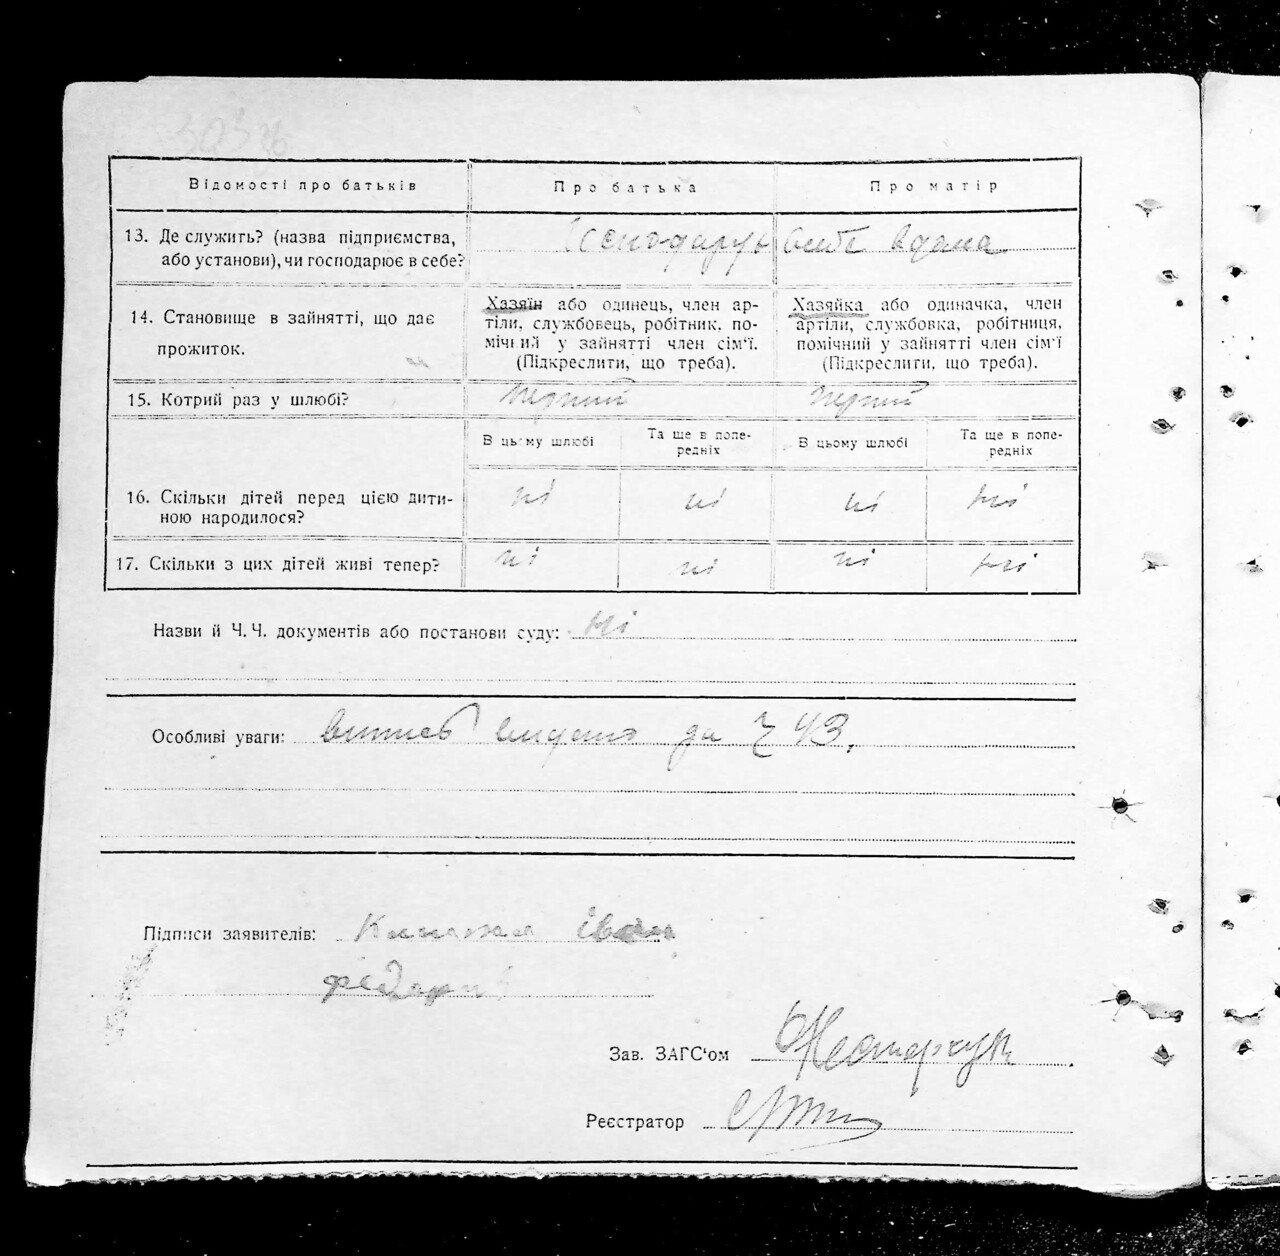 Відомості про батьків Про батька Про матір
13. Де служить? (назва підприємства, або установи), чи господарює в себе?
14. Становище в зайнятті, що дає прожиток.
Хазяїн або одинець, член ар-
тіли, службовець, робітник, по-
мічний у зайнятті член сім'ї.
(Підкреслити, що треба).
Хазяйка або одиначка, член
артіли, службовка, робітниця,
помічний у зайнятті член сім'ї
(Підкреслити, що треба).
15. Котрий раз у шлюбі? перший перший
В цьому шлюбі
Та ще в попе-
редніх
В цьому шлюбі
Та ще в попе-
редніх
16. Скільки дітей перед цією дити-
ною народилося?
ні ні ні ні
17. Скільки з цих дітей живі тепер? ні ні ні ні
Назви й Ч. Ч. документів або постанови суду: ні
Особливі уваги: видано за 43.
Підписи заявителів: Іван
Зав. ЗАГС'ом Нестерчук
Реєстратор